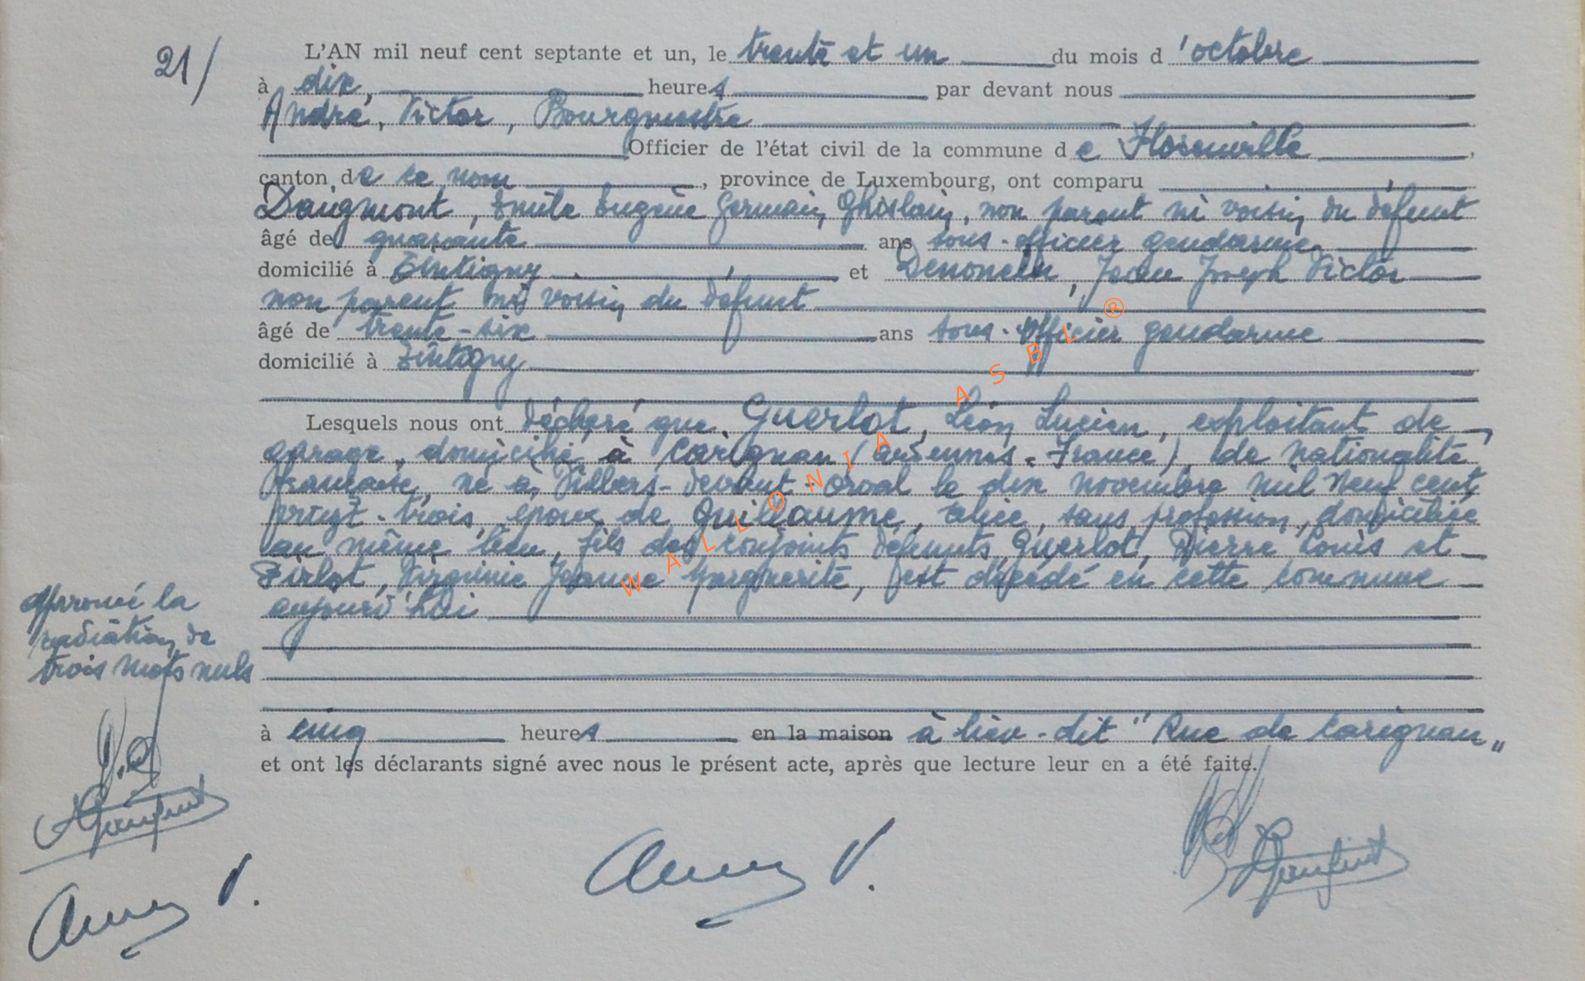 21/
L'AN mil neuf cent septante et un, le trente et un du mois d'octobre
à dix, heures par devant nous
André, Victor, Bourgmestre
Officier de l'état civil de la commune de Florenville,
canton de ce nom, province de Luxembourg, ont comparu
Daugmont, Emile Eugène Germain Ghislain, non parent ni voisin du défunt
âgé de quarante ans sous-officier gendarme
domicilié à Etintigny et Denoncin, Jean Joseph Victor
non parent ni voisin du défunt
âgé de trente-six ans sous-officier gendarme
domicilié à Tintigny
Lesquels nous ont déclaré que Guerlot, Léon Lucien, exploitant de
garage, domicilié à Carignan (Ardennes-France), de nationalité
française, né à Villers-devant-Orval le dix novembre mil neuf cent
vingt-trois, époux de Guillaume, Alice, sans profession, domiciliée
au même lieu, fils des conjoints défunts Guerlot, Pierre Louis et
Pirlot, Virginie Jeanne Marguerite, est décédé en cette commune
aujourd'hui
à cinq heures en la maison à lieu-dit "Rue de Carignan"
et ont les déclarants signé avec nous le présent acte, après que lecture leur en a été faite.
Approuvé la
radiation de
trois mots nuls
V.
V.
WALLONIA ASBL ®